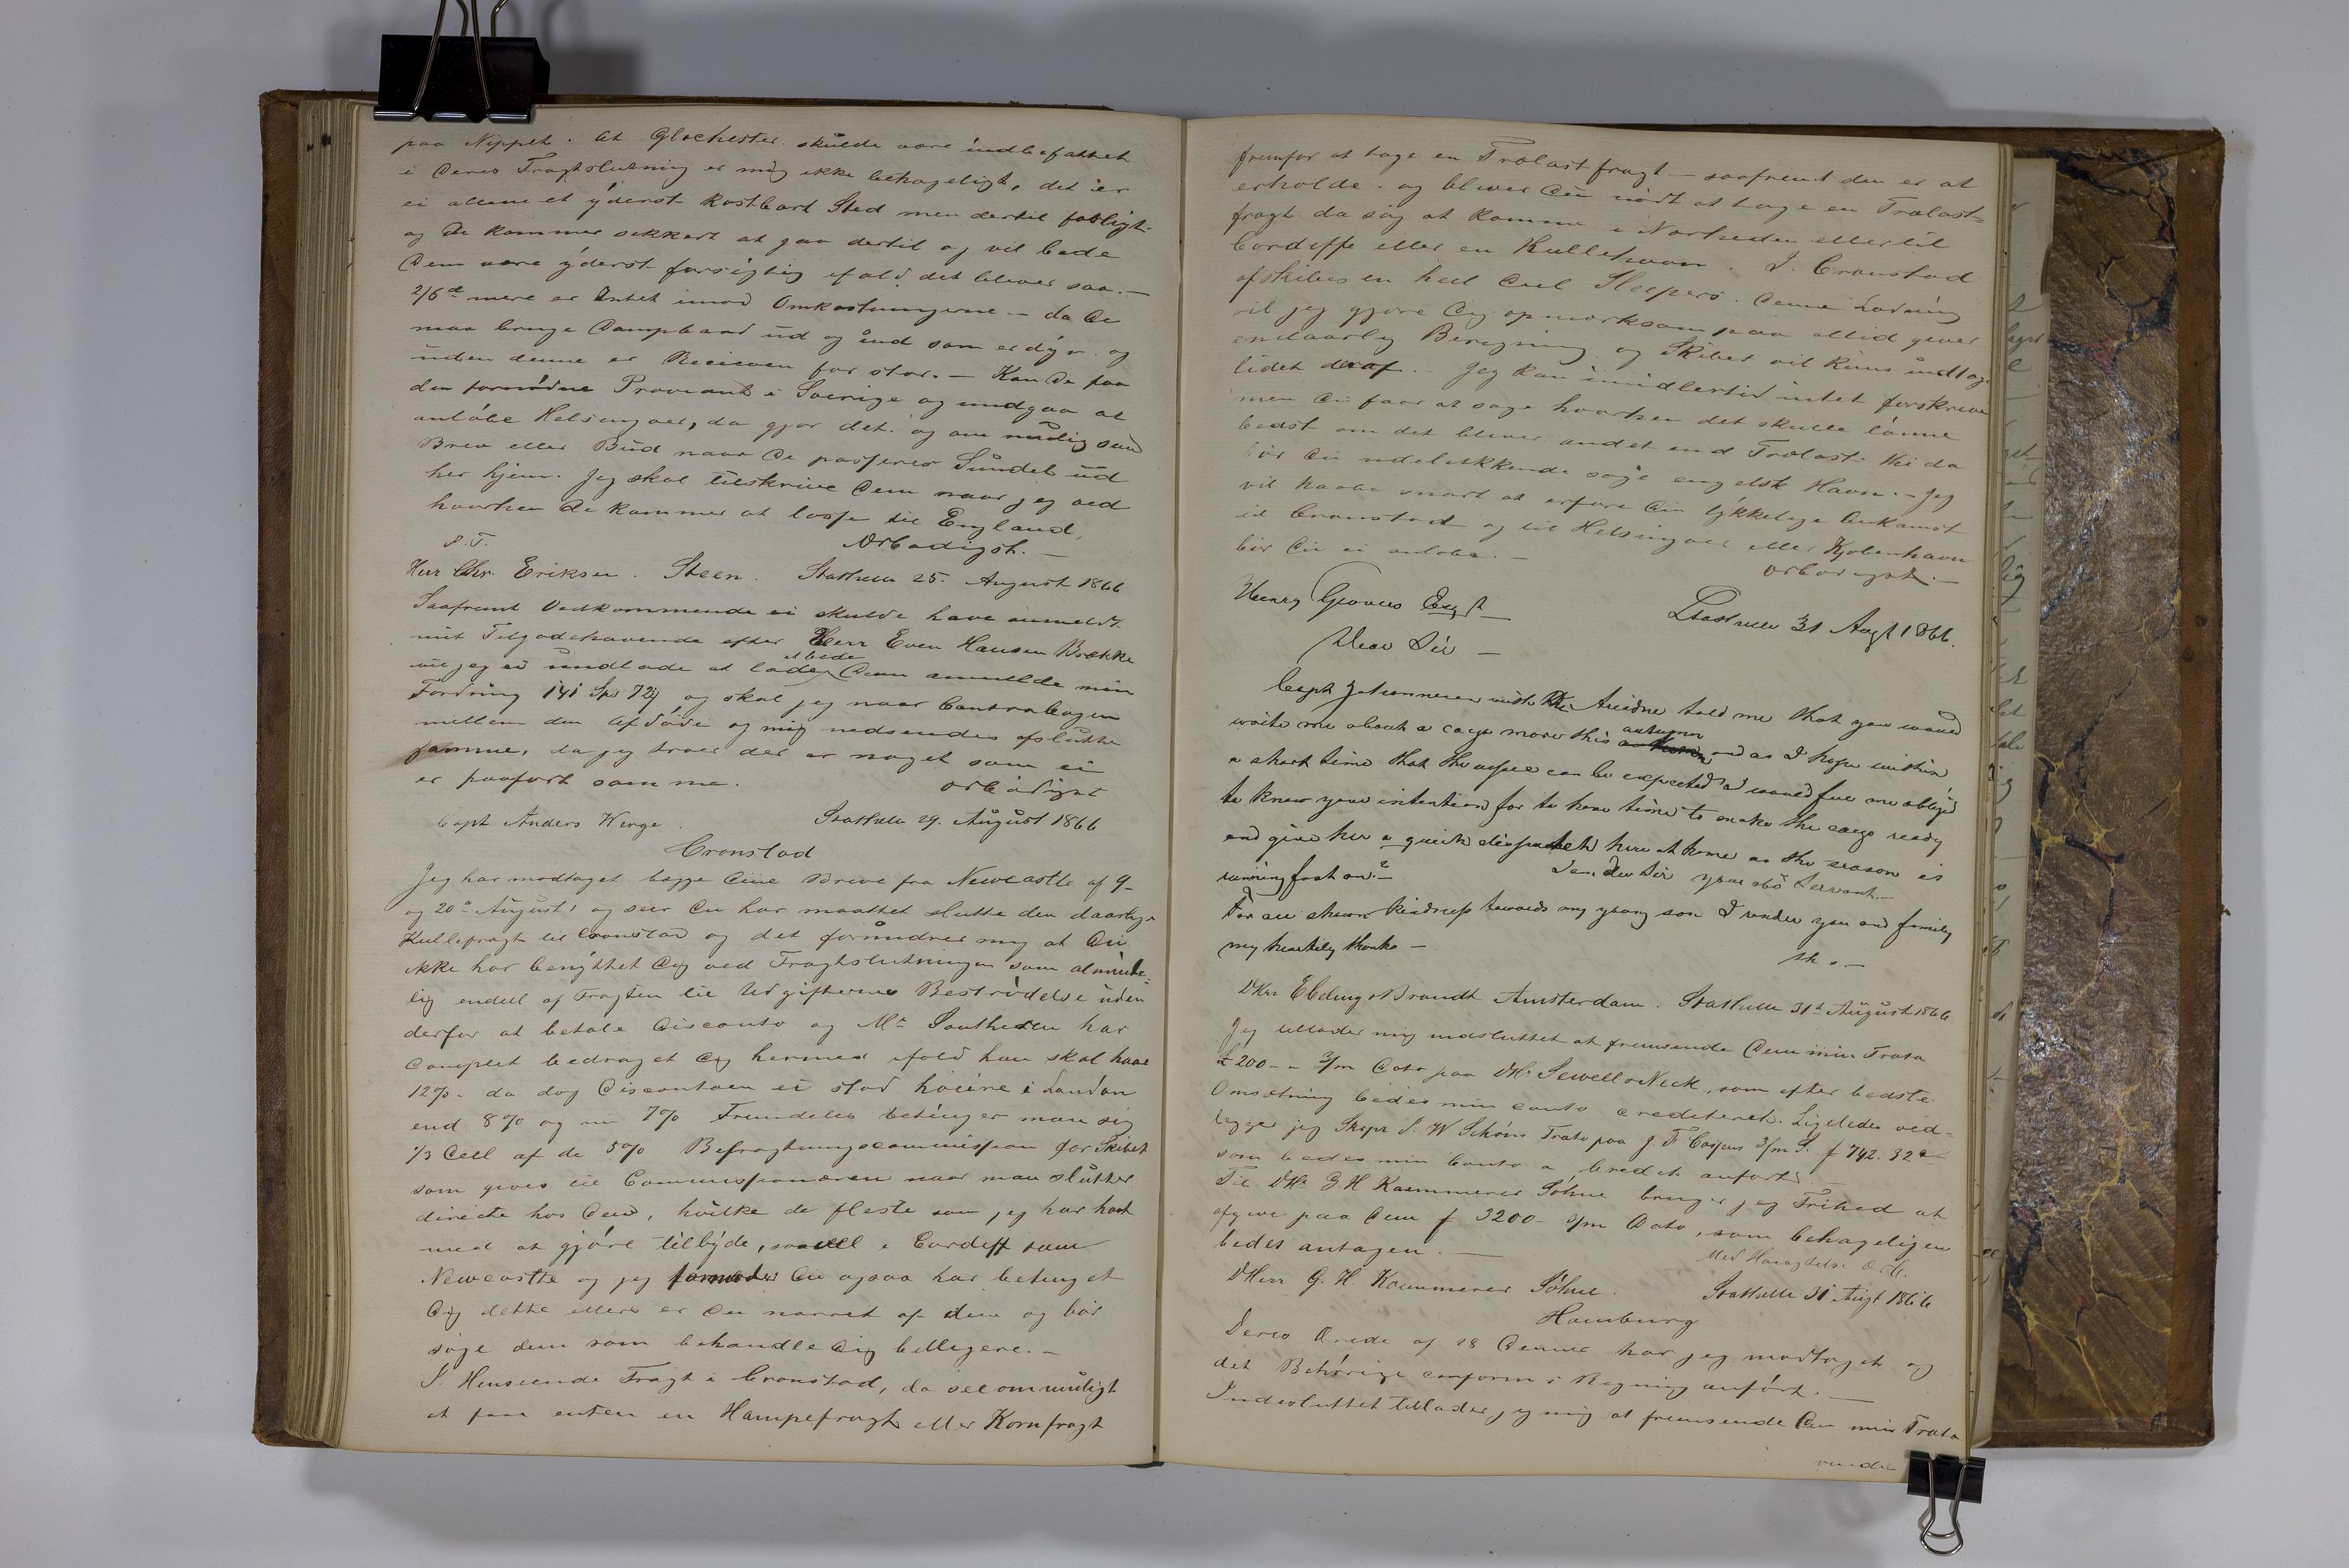 paa Nippet. At Glochester skulde være indbefattet
i Deres Fragtslutning er mig ikke behageligt, det er
ei allene et yderst kostbart Sted men dertil farligt
og De kommer sikkert at gaa dertil og vil bede
Dem være yderst forsigtig ifald det bliver saa. —
2/6d mere er Intet imod Omkostningerne — da De
maa bruge Dampbaad ud og ind som er dyr og
uden denne er Recicoen for stor. — Kan De faa
den fornødne Proviant i Sverige og undgaa at
anløbe Helsingøer, da gjør det. og om mulig send
Brev eller Bud naar De passerer Sundet ud
her hjem. Jeg skal tilskrive Dem naar jeg ved
hvorhen De kommer at losse til England,
S. T. Ærbødigst. —
Herr Chr. Eriksen. Steen. Stathelle 25. August 1866
Saafremt Vedkommende ei skulde have anmeldt
mit Tilgodehavende efter Herr Even Hansen Brække
vil jeg ei undlade at lade Dem anmelde min
at bede
Fordring 141 Spd 72 og skal jeg naar Contrabogen
mellem den Afdøde og mig nedsendes afslutte
samme, da jeg troer der er noget som ei
er paaført samme. Ærbødigst
Capt Anders Werge. Stathelle 29. August 1866
Cronstad
Jeg har modtaget begge Dine Breve fra Newcastle af 9-
og 20de August og seer Du har maattet slutte den daarlige
Kullefragt til Cronstad og det forundrer mig at Du
ikke har benyttet Dig ved Fragtslutningen som alminde-
lig endeel af Fragten til Udgifternes Bestridelse uden
derfor at betale Disconto og Mr Southeren har
complet bedraget Dig hermed ifald han skal have
12%. da dog Discontoen ei stod høiere i London
end 8% og nu 7% Fremdeles betinger man sig
1/3 Deel af de 5% Befragtningscommission for Skibet
som gives til Commissionæren naar man slutter
directe hos Dem, hvilke de fleste som jeg har havt
med at gjøre tilbyde, saavel i Cardiff som
Newcastle og jeg formoder Du ogsaa har betinget
Dig dette ellers er Du narret af dem og bør
søge dem som behandle Dig billigere. —
I Henseende Fragt i Cronstad, da see om muligt
at faa enten en Hampefragt eller Kornfragt
fremfor at tage en Trælastfragt — saafremt den er at
erholde. og bliver Du nødt at tage en Trælast-
fragt da søg at komme i Nærheden eller til
Cardiffe eller en Kullehavn. I Cronstad
afskibes en heel Deel Sleepers. Denne Ladning
vil jeg gjøre Dig opmærksom paa altid giver
en daarlig Beregning og Skibet vil kuns indtage
lidet deraf. Jeg kan imidlertid intet forskrive
men Du faar at søge hvorhen det skulle lønne
bedst om det bliver andet end Trælast. thi da
bør Du udelukkende søge engelsk Havn. — Jeg
vil haabe snart at erfare Din lykkelige Ankomst
til Cronstad og til Helsingøer eller Kjøbenhavn
bør Du ei anløbe. —
Ærbødigst. —
Henry Groves Esqr
Stathelle 31 Augt 1866.
Dear Sir —
Capt Johannesen with the Ariadne told me that you would
write me about a cargo more this autumn and as I hope within
a short time that the vessel can be expected I would feel me obliged
to know your intention for to have time to make the cargo ready
and give her a quick dispatch here at home as the season is
running fast on. —
I am dear Sir your obd Servant. —
For all shown kindness towards my young son I render you and family
my heartily thanks —
th. —
DHrr Ebeling & Brandt Amsterdam. Stathelle 31te August 1866
Jeg tillader mig indsluttet at fremsende Dem min Trata
£ 200 - 3/m Dato paa DHr Sewell & Neck, som efter bedste
Omsetning bedes min conto crediteret. Ligeledes ved-
lægger jeg Skipr S. W Schøns Trata paa J. F. 3/m D. f 742. 32
som bedes min Conto a Credit anført
Til DHr G. H Kaemmerer Söhne bruger jeg Frihed at
afgive paa Dem f 3200 - 3/m Dato, som behageligen
bedes antagen. —
Med Høiagtelse Ærb.
DHerr G. H. Kaemmerer Söhne. Stathelle 31 Augt 1866
Hamburg
Deres Ærede af 28 Denne har jeg modtaget og
det Behørige conform i Regning anført. —
Indesluttet tillader jeg mig at fremsende Dem min Trata